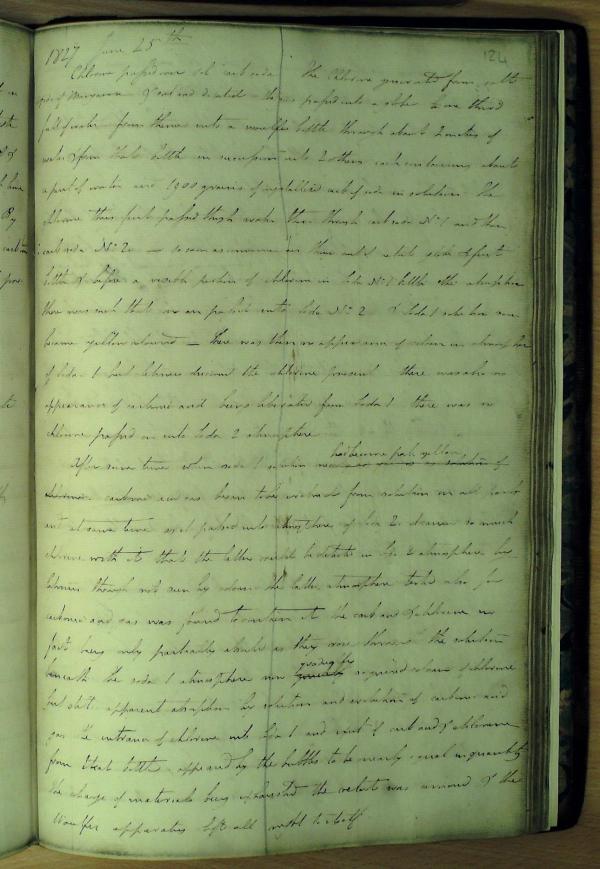 124
1827 June 25th
Chlorine passed over sol carb soda. The Chlorine generated from
of Manganese & salt and the gas passed into a globe to one third
full of water from thence into a woulfes bottle through about 2 inches of
water & from that bottle in succession into 2 others each containing about
a pint of water and 1900 grains of crystallized carb of soda in solution. The
chlorine thus first passed through water then through carb soda No 1 and then
carb soda No 2 — so soon as common air thrown out of whole globe & first
bottle & before a visible portion of chlorine in Soda No 1 bottle the atmosphere
there was such that no air passed into Soda No 2 & Soda 1 solution soon
became yellow coloured — there was then no appearance of colour in atmosphere
of Soda 1 but litmus discovered the chlorine present there was also no
appearance of carbonic acid being liberated from Soda 1 there was no
chlorine passed on into Soda 2 atmosphere
After some time when soda 1 solution had become pale yellow
carbonic acid gas began to be evolved from solution in all parts
and at same time as it passed into atmosphere of Soda 2 carried so much
chlorine with it that the latter could be detected in Soda 2 atmosphere by
litmus though not seen by colour the latter atmosphere tested also for
carbonic acid gas was found to contain it the carb acid & chlorine in
fact being only partially absorbed as they rose through the solution
beneath the soda 1 atmosphere now gradually acquired colour of chlorine
but still apparent absorption by solution and evolution of carbonic acid
gas the entrance of chlorine into Soda 1 and exit of carb acid & chlorine
from that bottle appeared by the bubbles to be nearly equal in quantity
the charge of materials being exhausted the retort was removed & the
Woulfes apparatus left all night to itself